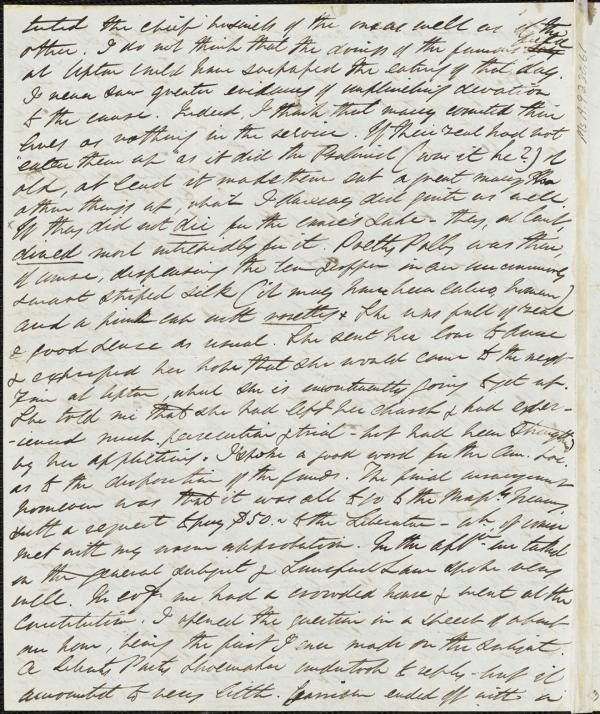 tuted the chief business of the one as well as of the
other. I do not think that the doings of the famous
at Upton could have surpassed the eating of that day.
I never saw greater evidence of unflinching devotion
to the cause. Indeed, I think that many counted their
lives as nothing in the service. If their zeal had not
"eaten them up" as it did the Psalmist (was it he?) of
old, at least it made them eat a great many
other things up, what I daresay did quite as well.
If they did not die for the cause's sake - they, at least
dined most intrepidly for it. Pretty Polly was there,
of course, dispensing the tea & coffee in an uncommonly
smart striped silk (it may have been calico, however)
and a pink cap with rosettes & She was full of zeal
& good sense as usual. She sent her love to
& expressed her hope that she would come to the next
Fair at Upton, which she is going to get up.
She told me that she had left her church & had exper-
-ienced much persecution & trial - but had been strengthened
by her afflictions. I spoke a good word for the Am. Soc.
as to the disposition of the funds. The final arrangement
however was that it was all to go to the Massts. Treasy.
with a request to pay $50 to the Liberator - wh. of course
met with my warm approbation. In the aftn we talked
on the general subject & Lunsford Lane spoke very
well. In evg. we had a crowded house & went at the
Constitution. I opened the question in a speech of about
one hour, being the first I ever made on the subject.
A Liberty Party Shoemaker undertook to reply - but it
amounted to very little. Garrison ended off with a